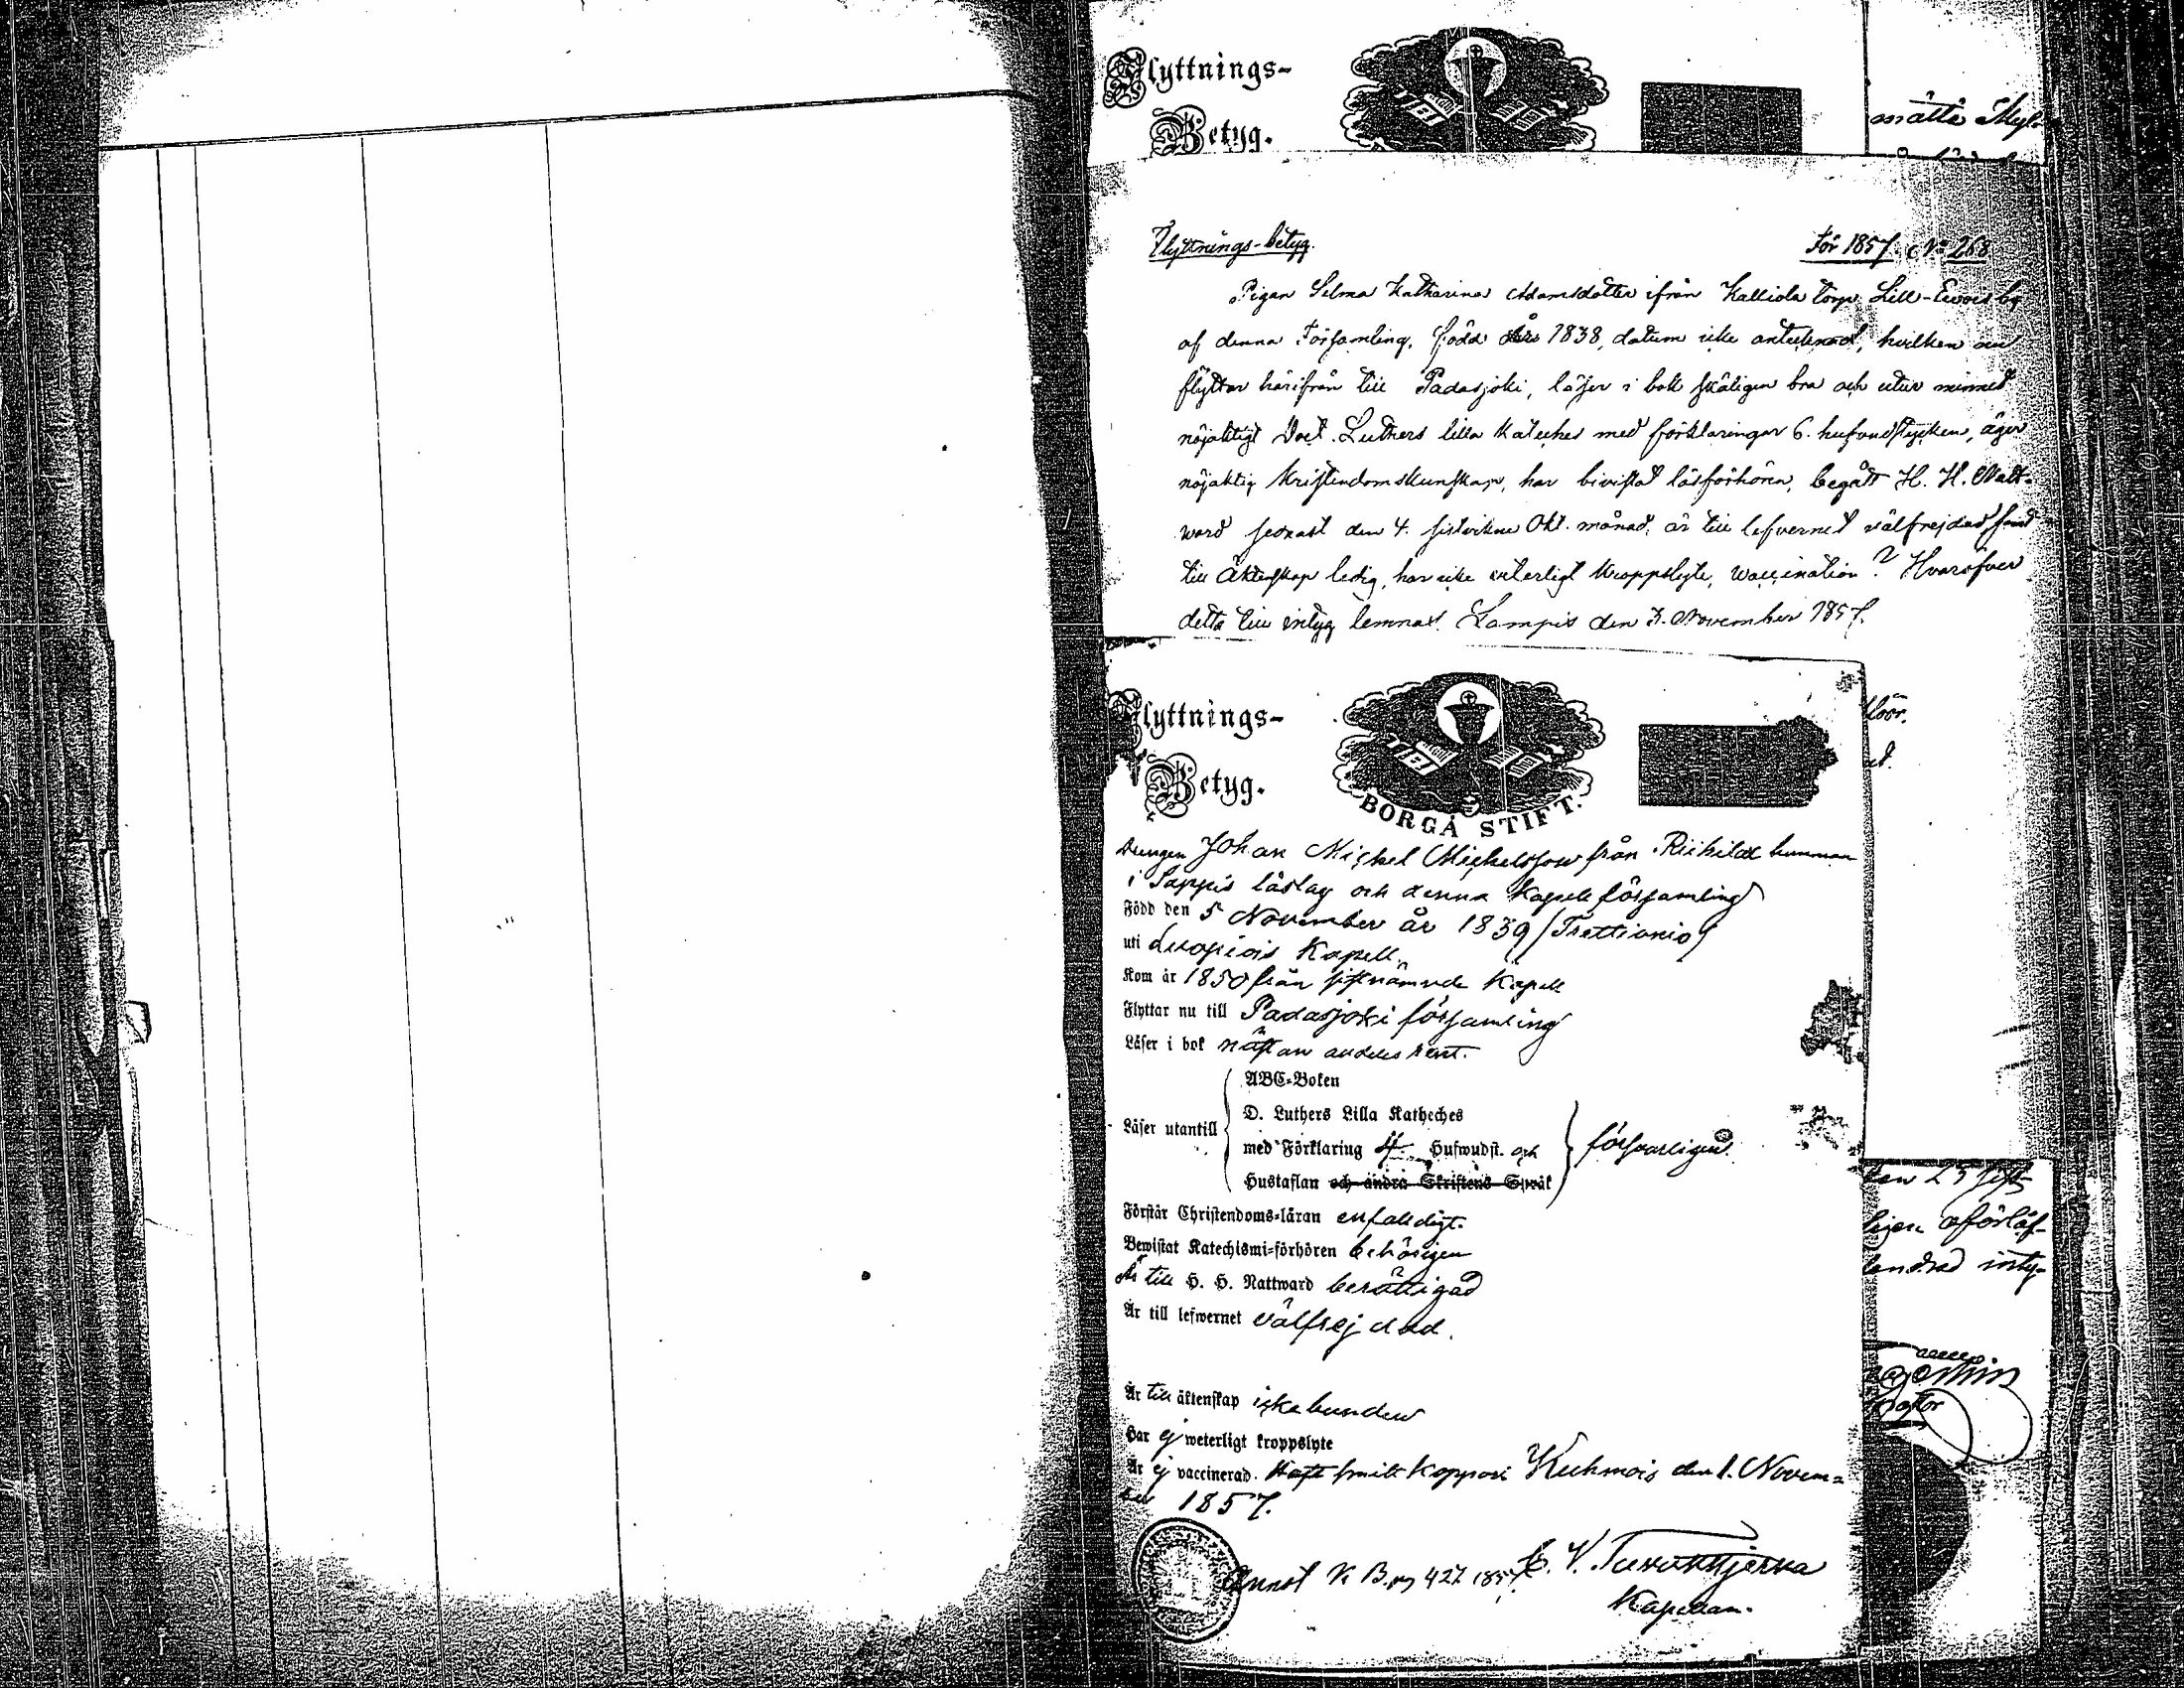 Flyttnings-
Betyg.
måtte
Flyttnings-betyg.
För 1857. No 268
Pigan Selma Katharina Adamsdotter ifrån Kalliola torp Lill-Evois by
af denna Församling, född år 1838, datum icke antecknad, hvilken nu
flyttar härifrån till Padasjoki, läser i bok skäligen bra och utur minnet
nöjaktigt Doct. Luthers lilla Kateches med förklaringar 6. hufvudstycken, äger
nöjaktig Kristendomskunskap, har bivistat läsförhören, begått H. H. Natt-
ward senast den 4. sistvikne Okt. månad, är till lefvernet välfrejdad samt
till Äktenskap ledig, har icke veterligt kroppslyte, vaccination? Hvaröfver
detta till intyg lemnas. Lampis den 3. November 1857.
Flyttnings-
Betyg.
BORGÅ STIFT.
Drengen Johan Michel Michelsson från
i Sappis läslag och denna Kapell församling
Född den 5 November år 1839 /Trettionio/
uti Luopiois Kapell.
Kom år 1850 från sistnämnde Kapell
Flyttar nu till Padasjoki församling
Läser i bok nästan alldeles rent.
ABC-Boken
D. Luthers Lilla Katheches
Läser utantill
med Förklaring 4 Hufwudst. och
försvarligen.
Hustaflan och andra Skriftens Språk
Förstår Christendoms-läran enfaldigt.
Bewistat Katechismi-förhören behörigen
Är till H. H. Nattward berättigad
Är till lefwernet välfrejdad.
Är till äktenskap icke bunden
Har ej weterligt kroppslyte
Är ej vaccinerad. Haft smittkoppor. Kuhmois den 1. Novem-
ber 1857.
Kapellan.
den 23 sist-